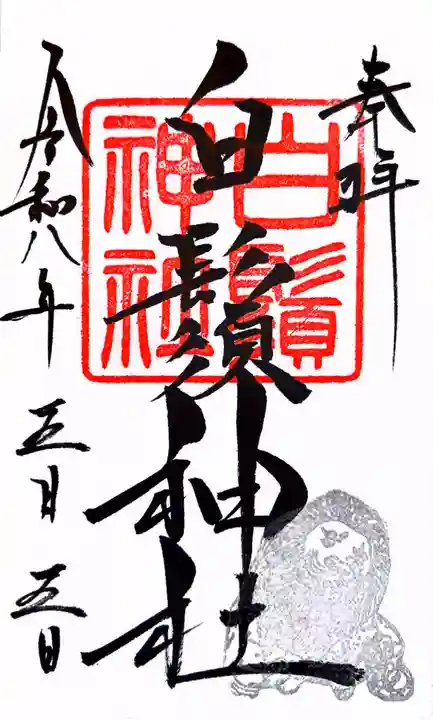 奉拝
白鬚神社
白鬚神社
令和八年 五月 五日